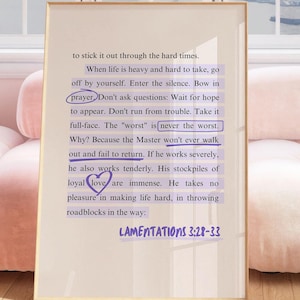 to stick it out through the hard times.
When life is heavy and hard to take, go
off by yourself. Enter the silence. Bow in
prayer. Don't ask questions: Wait for hope
to appear. Don't run from trouble. Take it
full-face. The "worst" is never the worst.
Why? Because the Master won't ever walk
out and fail to return. If he works severely,
he also works tenderly. His stockpiles of
loyal love are immense. He takes no
pleasure in making life hard, in throwing
roadblocks in the way:
LAMENTATIONS 3:28-33